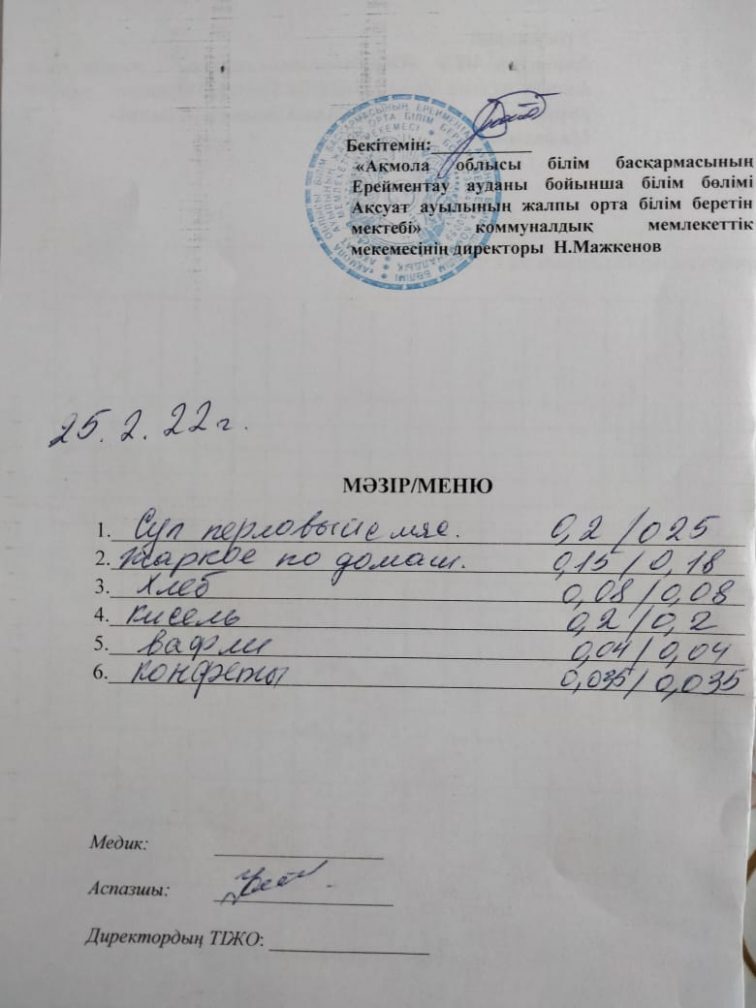 Бекітемін:
«Ақмола облысы білім басқармасының
Ерейментау ауданы бойынша білім бөлімі
Ақсуат ауылының жалпы орта білім беретін
мектебі» коммуналдық мемлекеттік
мекемесінің директоры Н.Мажкенов
25.2.22г.
МӘЗІР/МЕНЮ
1. Суп перловый с мяс. 0,2/025
2. жаркое по домаш. 0,15/0,18
3. хлеб 0,08/0,08
4. кисель 0,2/0,2
5. вафли 0,04/0,04
6. конфеты 0,035/0,035
Медик:
Аспазшы:
Директордың ТІЖО: